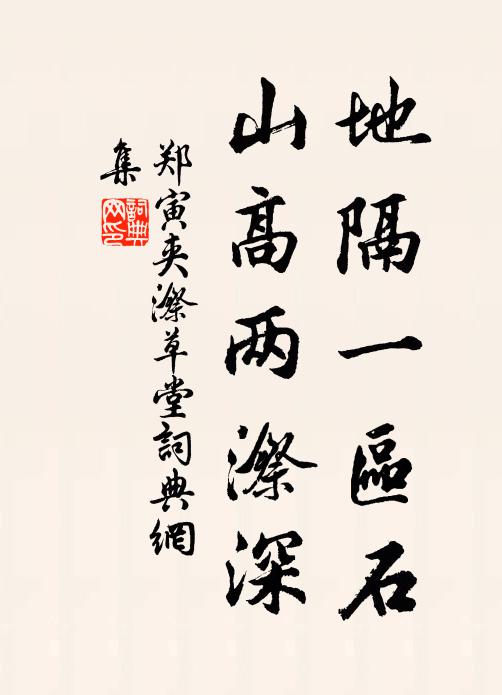 地隔一區石
山高两漈深
郑寅夹漈草堂詞典網
集
詞典網印